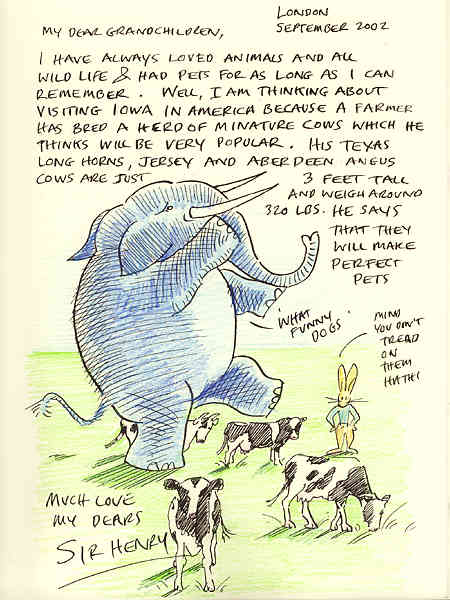 LONDON
SEPTEMBER 2002
MY DEAR GRANDCHILDREN,
I HAVE ALWAYS LOVED ANIMALS AND ALL
WILD LIFE & HAD PETS FOR AS LONG AS I CAN
REMEMBER. WELL, I AM THINKING ABOUT
VISITING IOWA IN AMERICA BECAUSE A FARMER
HAS BRED A HERD OF MINATURE COWS WHICH HE
THINKS WILL BE VERY POPULAR. HIS TEXAS
LONG HORNS, JERSEY AND ABERDEEN ANGUS
COWS ARE JUST 3 FEET TALL
AND WEIGH AROUND
320 LBS. HE SAYS
THAT THEY
WILL MAKE
PERFECT
PETS
'WHAT
FUNNY
DOGS'
MIND
YOU DON'T
TREAD
ON
THEM
HATHI
MUCH LOVE
MY DEARS
SIR HENRY